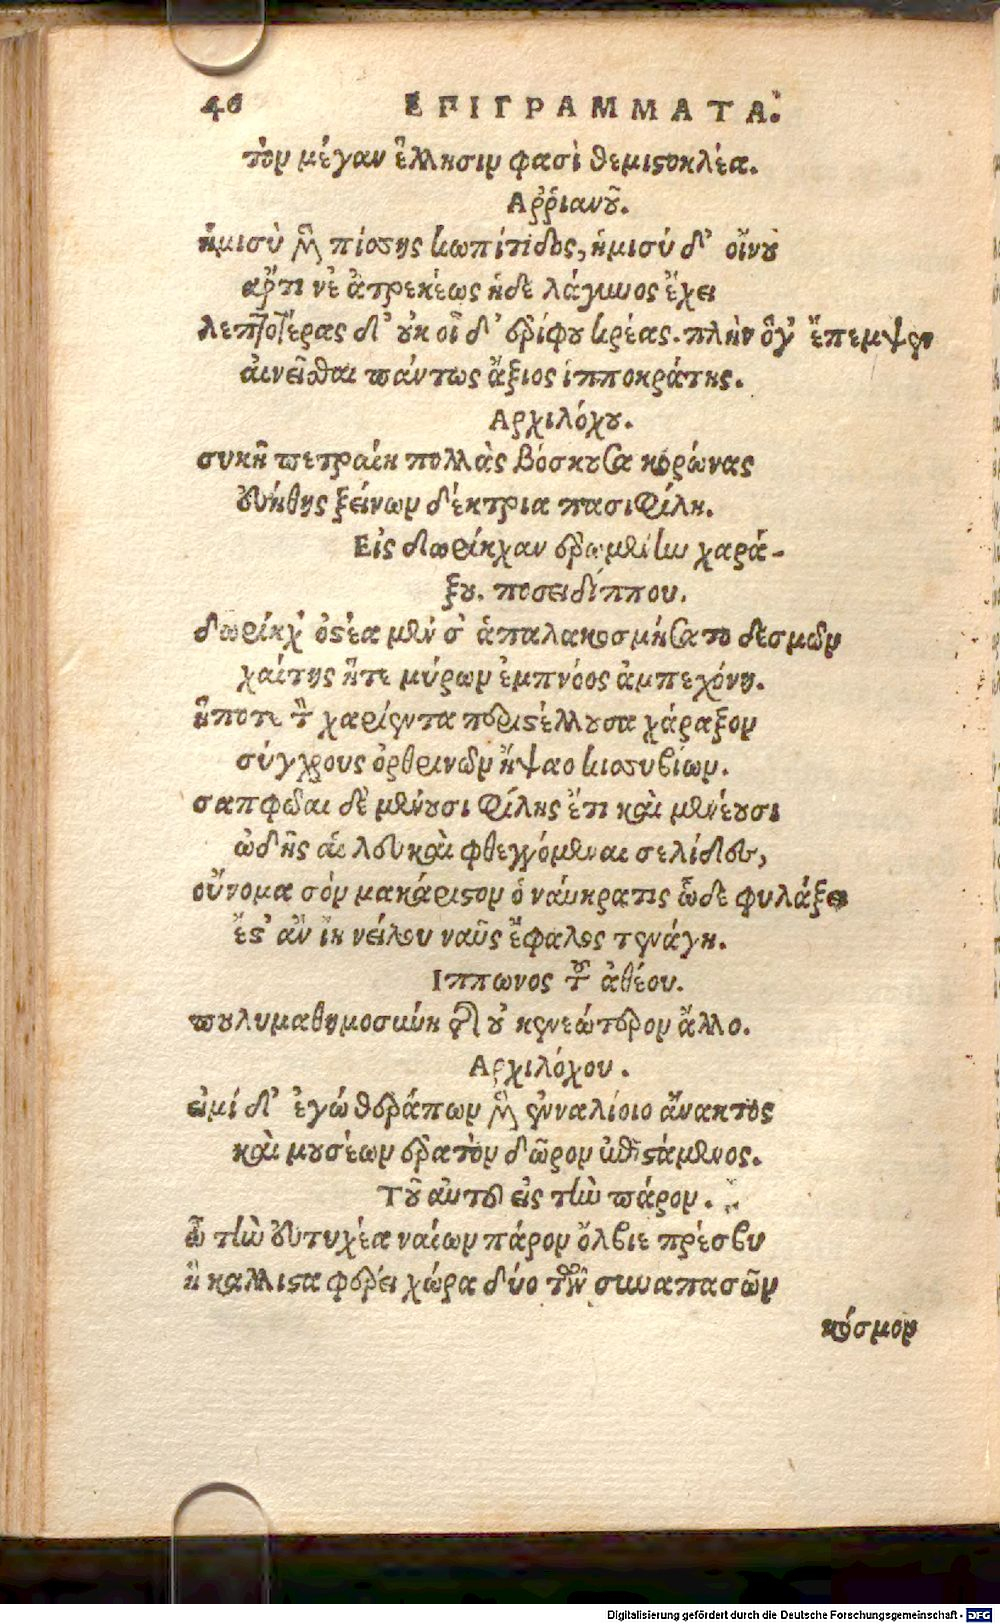 46 ΕΠΙΓΡΑΜΜΑΤΑ.
τὸν μέγαν ἕλλησιν φασὶ θεμιστοκλέα.
Αῤῥιανοῦ.
ἥμισυ πίσσης κωπίτιδος, ἥμισύ δ' οἴνου
ἄρτι ἀτρεκέως ἥδε λάγυνος ἔχει
λεπτοτέρας δ' οὐκ οἶδ' ἐρίφου κρέας. πλὴν ὅγ' ἔπεμψεν
αἰνεῖσθαι πάντως ἄξιος ἱπποκράτης.
Αρχιλόχου.
συκῆ πετραίη πολλὰς βόσκουσα κορώνας
εὐήθης ξείνων δέκτρια πασιφίλη.
Εἰς δωρίκχαν ἐρωμένην χαρά-
ξου. ποσειδίππου.
δωρίκχ' ὀστέα μέν σ' ἁπαλὰ κοσμήσατο δεσμῶν
χαίτης ἥτε μύρων ἐμπνόος ἀμπεχόνη.
ἥποτε τὸν χαρίεντα περιστέλλουσα χάραξον
σύγχρους ὀρθρινῶν ἥψαο κισσυβίων.
σαπφῶαι δὲ μένουσι φίλης ἔτι καὶ μενέουσι
ὠδῆς αἱ λευκαὶ φθεγγόμεναι σελίδες,
οὔνομα σὸν μακάριστον ὁ ναύκρατις ὧδε φυλάξει
ἔστ' ἂν ἴῃ νείλου ναῦς ἔφαλος τενάγη.
Ιππωνος τοῦ ἀθέου.
πουλυμαθημοσύνη τῆς οὐ κενεώτερον ἄλλο.
Αρχιλόχου.
εἰμί δ' ἐγώ θεράπων μὲν ἐνυαλίοιο ἄνακτος
καὶ μουσέων ἐρατὸν δῶρον ἐπιστάμενος.
Τοῦ αὐτοῦ εἰς τὴν πάρον.
ὦ τὴν εὐτυχέα ναίων πάρον ὄλβιε πρέσβυ
ἣ κάλλιστα φέρει χώρα δύο τῶν συναπασῶν
κόσμον
Digitalisierung gefördert durch die Deutsche Forschungsgemeinschaft - DFG